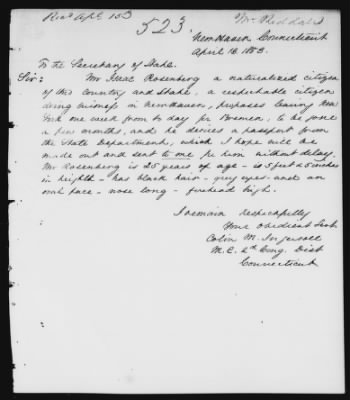 Rec'd Apl 153
523
Mr Riddall
New Haven Connecticut
April 12 1853.
To The Secretary of State.
Sir: Mr Isaac Rosenberg a naturalized citizen
of this country and State, a respectable citizen
doing business in New Haven, proposes leaving New
York one week from to day for Bremen, to be gone
a few months, and he desires a passport from
the State Department, which I hope will be
made out and sent to me for him without delay.
Mr Rosenberg is 25 years of age - is 5 feet 5 inches
in height - has black hair - grey eyes - and an
oval face - nose long - forehead high.
I remain respectfully
Your obedient Servt
Colin M. Ingersoll
M.C. 2d Cong. Dist
Connecticut